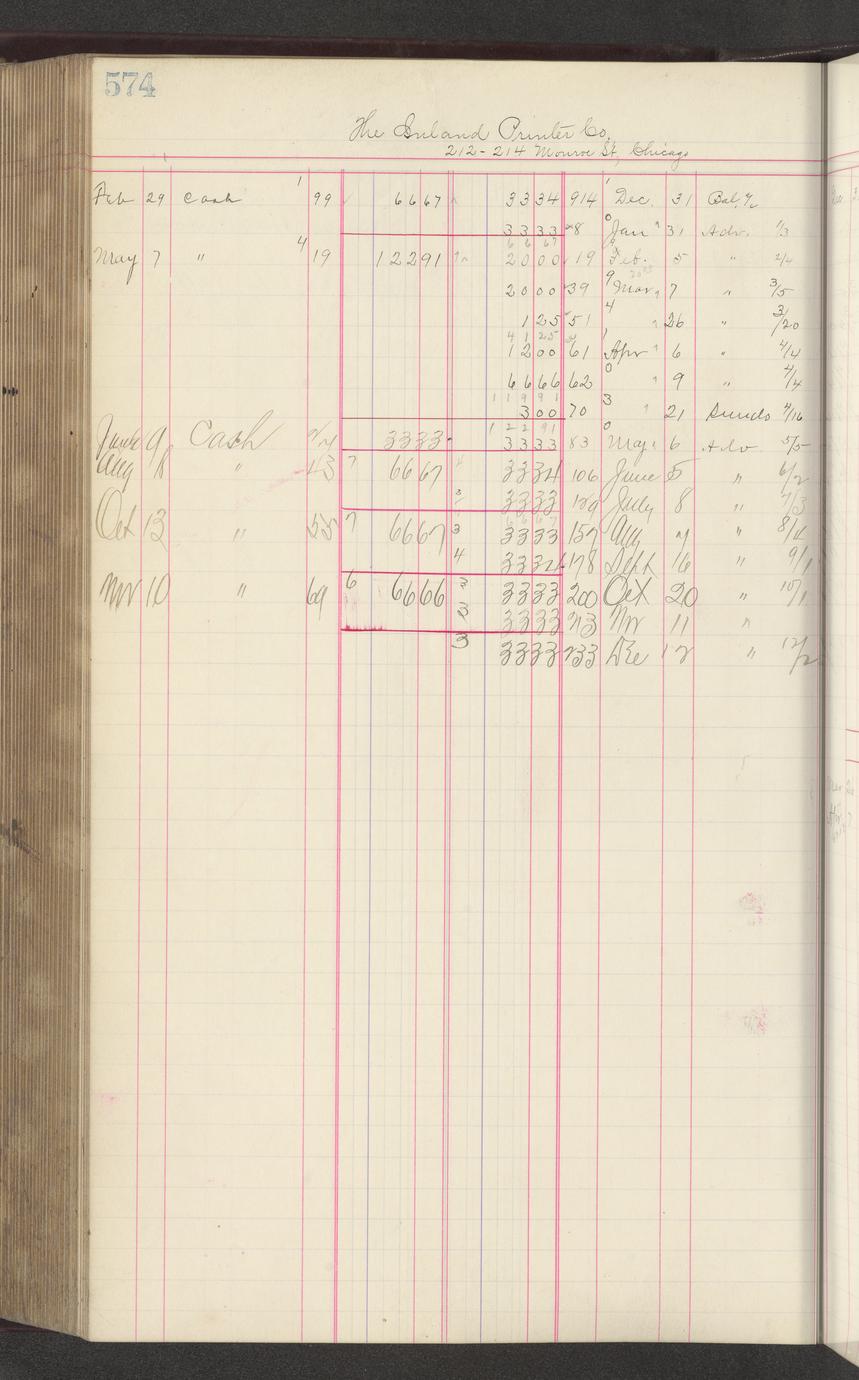 574
The Inland Printer Co.
212-214 Monroe St, Chicago
Feb 29 Cash 1 99 6667 3334 914 1 Dec. 31 Bal. %
3333 28 0 Jan 31 Adv. 1/3
6667
May 7 " 4 19 12291 2000 19 9 Feb. 5 " 2/4
2000 39 9 Mar 7 " 3/5
125 51 4 " 26 3/20
4125
1200 61 1 Apr 6 " 4/4
6666 62 0 " 9 " 4/4
11991
300 70 3 " 21 Sunds 4/16
12291
June 9 Cash 3333 3333 83 0 May 6 Adv 5/5
Aug 8 " 43 7 6667 4 3334 106 June 5 " 6/2
3333 129 July 8 " 7/3
6667
Oct 13 " 55 7 6667 3 3333 157 Aug 7 " 8/4
4 3334 178 Sept 16 " 9/1
Nov 10 " 69 6 6666 3 3333 200 Oct 20 " 10/1
3 3333 213 Nov 11 "
3 3333 233 Dec 12 " 12/2